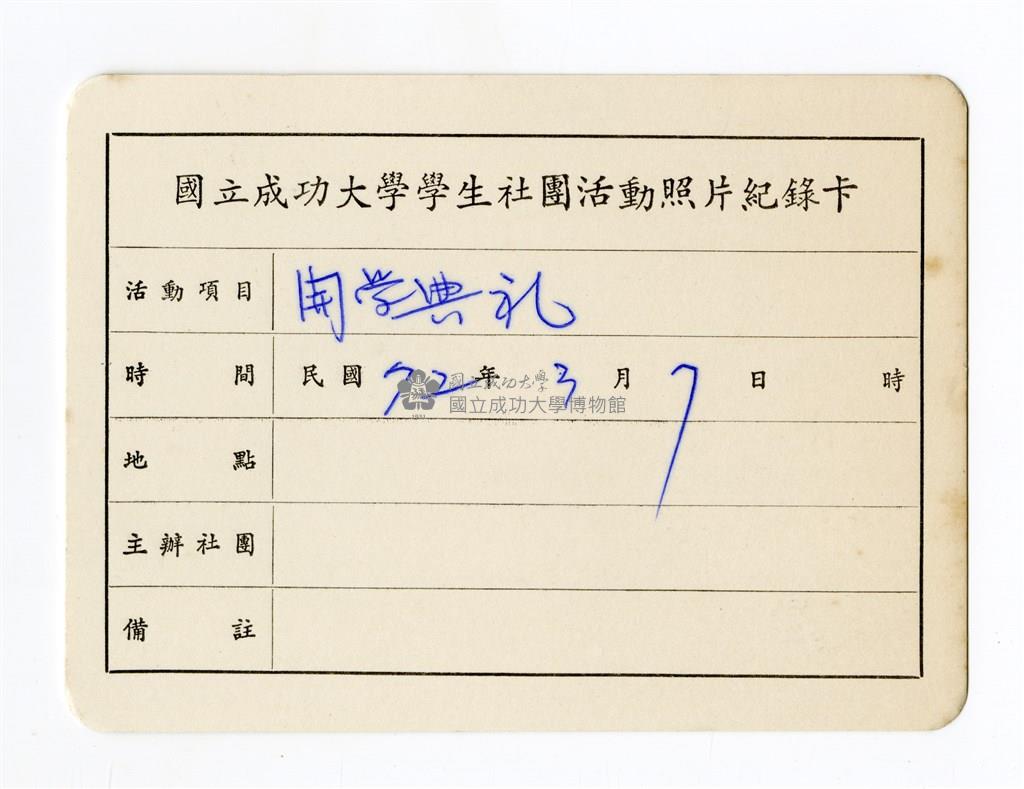 國立成功大學學生社團活動照片紀錄卡
活動項目 開学典礼
時間 民國 72 年 3 月 7 日 時
國立成功大學
國立成功大學博物館
1931
地點
主辦社團
備註